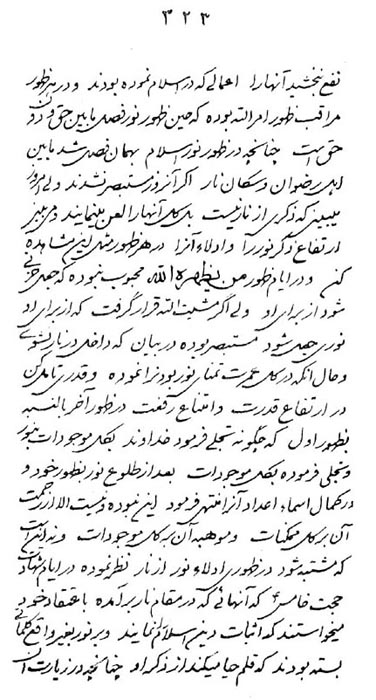 ۳۲۳
نفع نبخشید آنها را اعمالی که در اسلام نموده بودند و در هر ظهور
مراقب ظهور امر الله بوده که حین ظهور نور فصل مابین حق و دون
حق است چنانچه در ظهور نور اسلام همان فصل شد مابین
اهل رضوان و سکان نار اگر آنروز مستبصر نشدند ولی امروز
میبینی که ذکری از نار نیست بل کل آنها را لعن مینمایند و می بینی
ارتفاع ذکر نور را و اولاء آنرا در هر ظهور مثل این مشاهده
کن و در ایام ظهور من یظهره الله محبوب نبوده که جعل حزنی
شود از برای او ولی اگر مشیت الله قرار گرفت که از برای او
نوری جعل شود مستبصر بوده در بیان که داخل در نار نشوی
و حال آنکه در کل عمرت تمنای نور بود ترا نموده و قدری تأمل کن
در ارتفاع قدرت و امتناع رفعت در ظهور آخر بالنسبه
بظهور اول که چگونه تجلی فرمود خداوند بکل موجودات بنور
و تجلی فرموده بکل موجودات بعد از طلوع نور بظهور خود و
در کمال اسماء اعداد آنرا منتهی فرمود این نبوده و نیست الا از رحمت
آن بر کل ممکنات و موهبه آن به کل موجودات و نه این است
که مشتبه شود در ظهوری ادلاء نور از نار نظر نموده در ایام شهادت
حجت خامس که آنهائی که در مقام نار برآمده باعتقاد خود
میخواستند که اثبات دین اسلام را نمایند و بر نور بغیر واقع کلماتی
بسته بودند که قلم حیا میکند از ذکر او چنانچه در زیارت آن